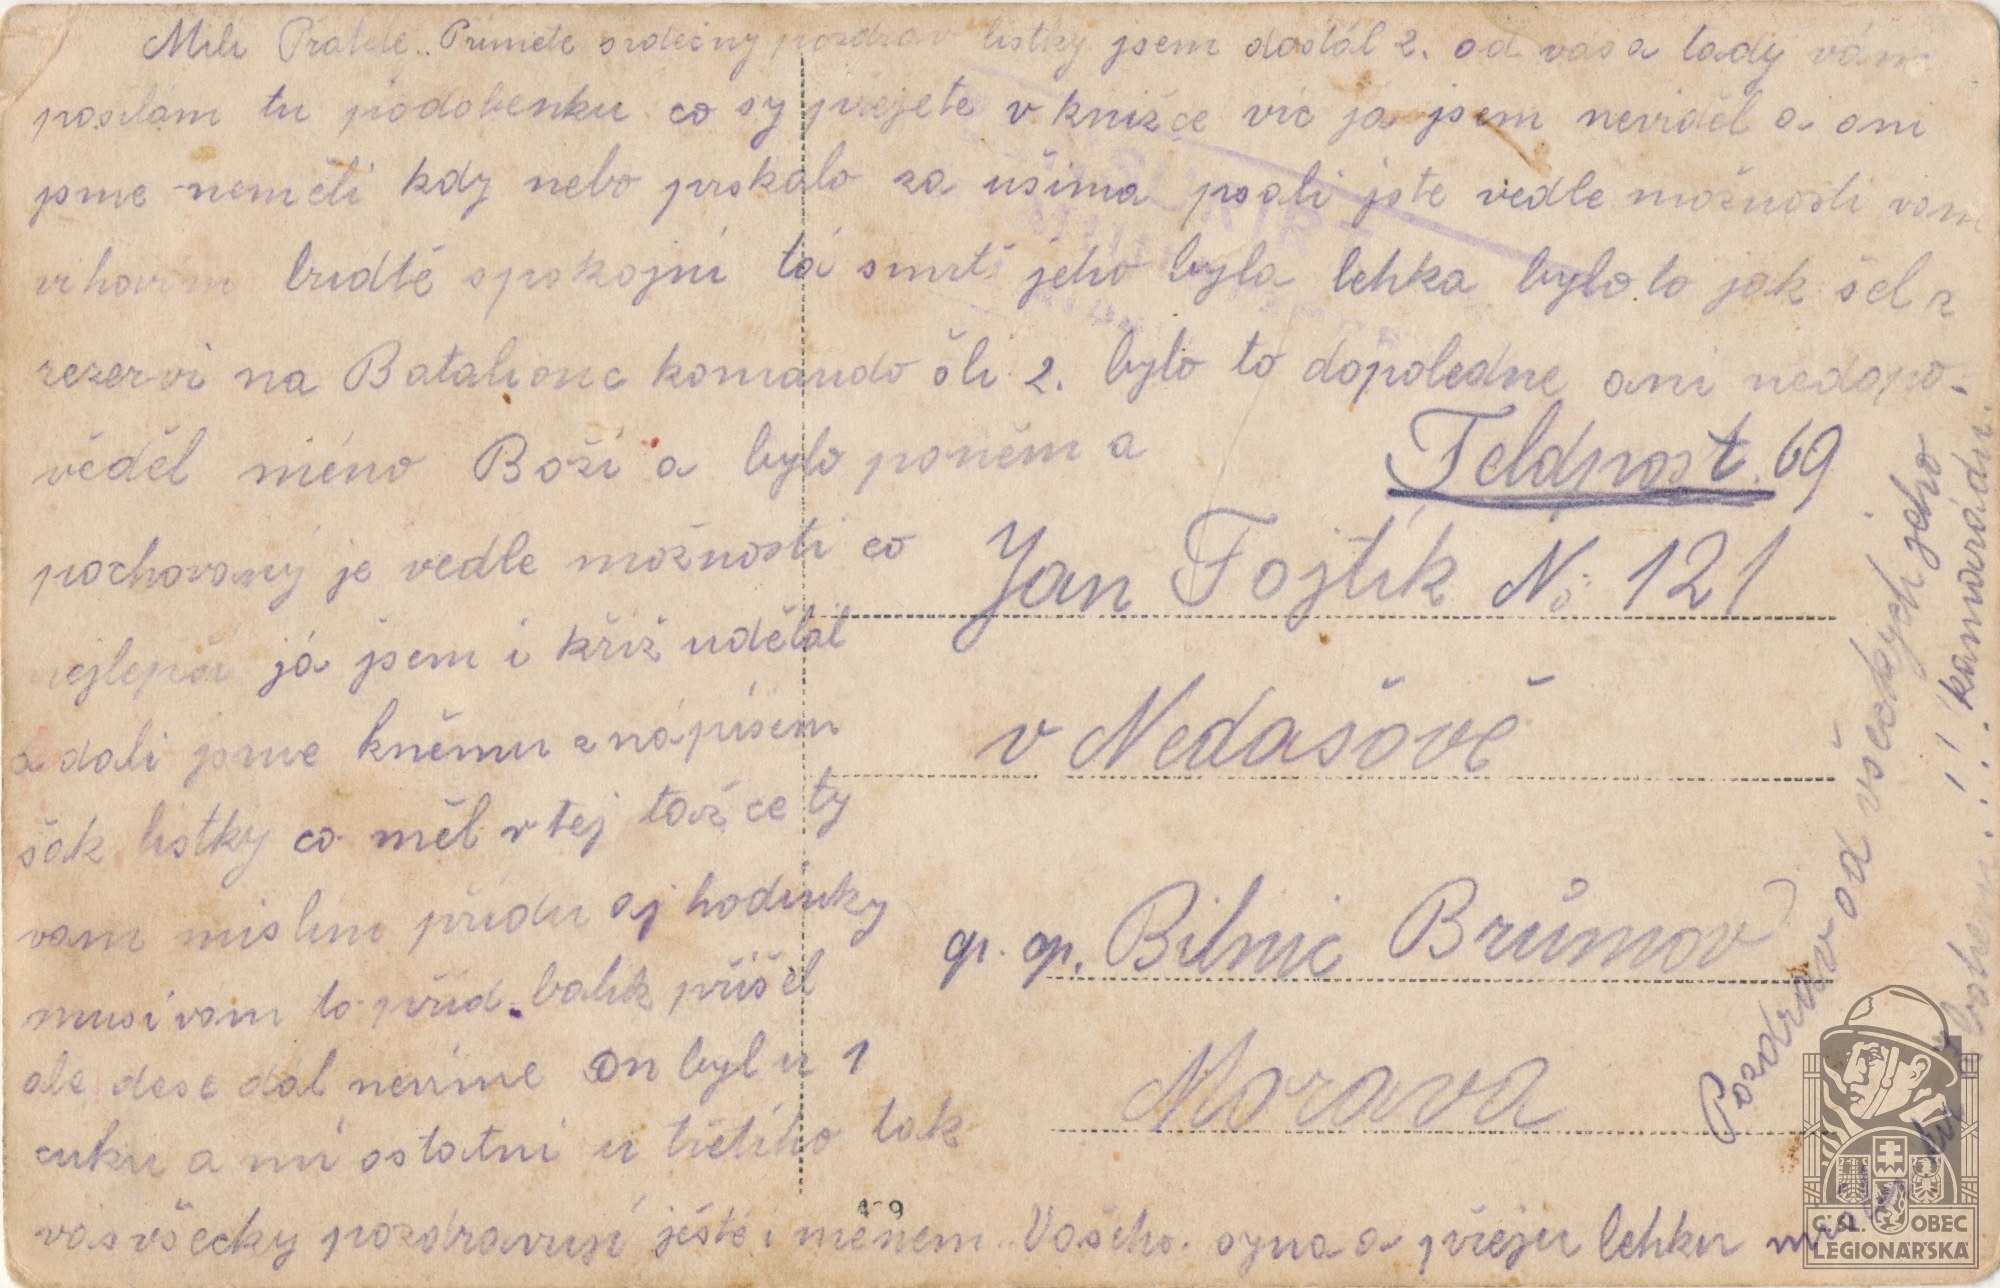 Mili Přátelé.. Príměte srdečný pozdrav lístky jsem dostál 2. od vás a tady vám
posílám tu podobenku co sy přejete v knižce víc já jsem neviděl a ani
jsme neměli kdy nebo prskalo za ušima psali jste vedle možnosti vám
vihovím buďtě spokojní tá smrť jeho byla lehka bylo to jak šel z
rezervi na Batalionc komando šli 2. bylo to dopoledne ani nedopo-
věděl méno Boží a bylo poněm a
pochovaný je vedle možnosti co
nejlepší já jsem i kříž udělal
a dali jsme kněmu z nápisem
šak lístky co měl v tej tašce ty
vam mislim přídu aj hodinky
musí vám to príd. balik přišel
ale dese dál nevíme on byl u 1
cuku a mi ostatni u třetího tak
vás všecky pozdravují ještě i měnem Vašeho. syna a přeju lehku
Feldpost. 69
Jan Fojtík No 121
v Nedašově
p. p. Bilnic Brůmov
Morava
Pozdrav od všeckych jeho
kamarádu.
z bohem.!!!
19
ČSL. OBEC
LEGIONÁŘSKÁ